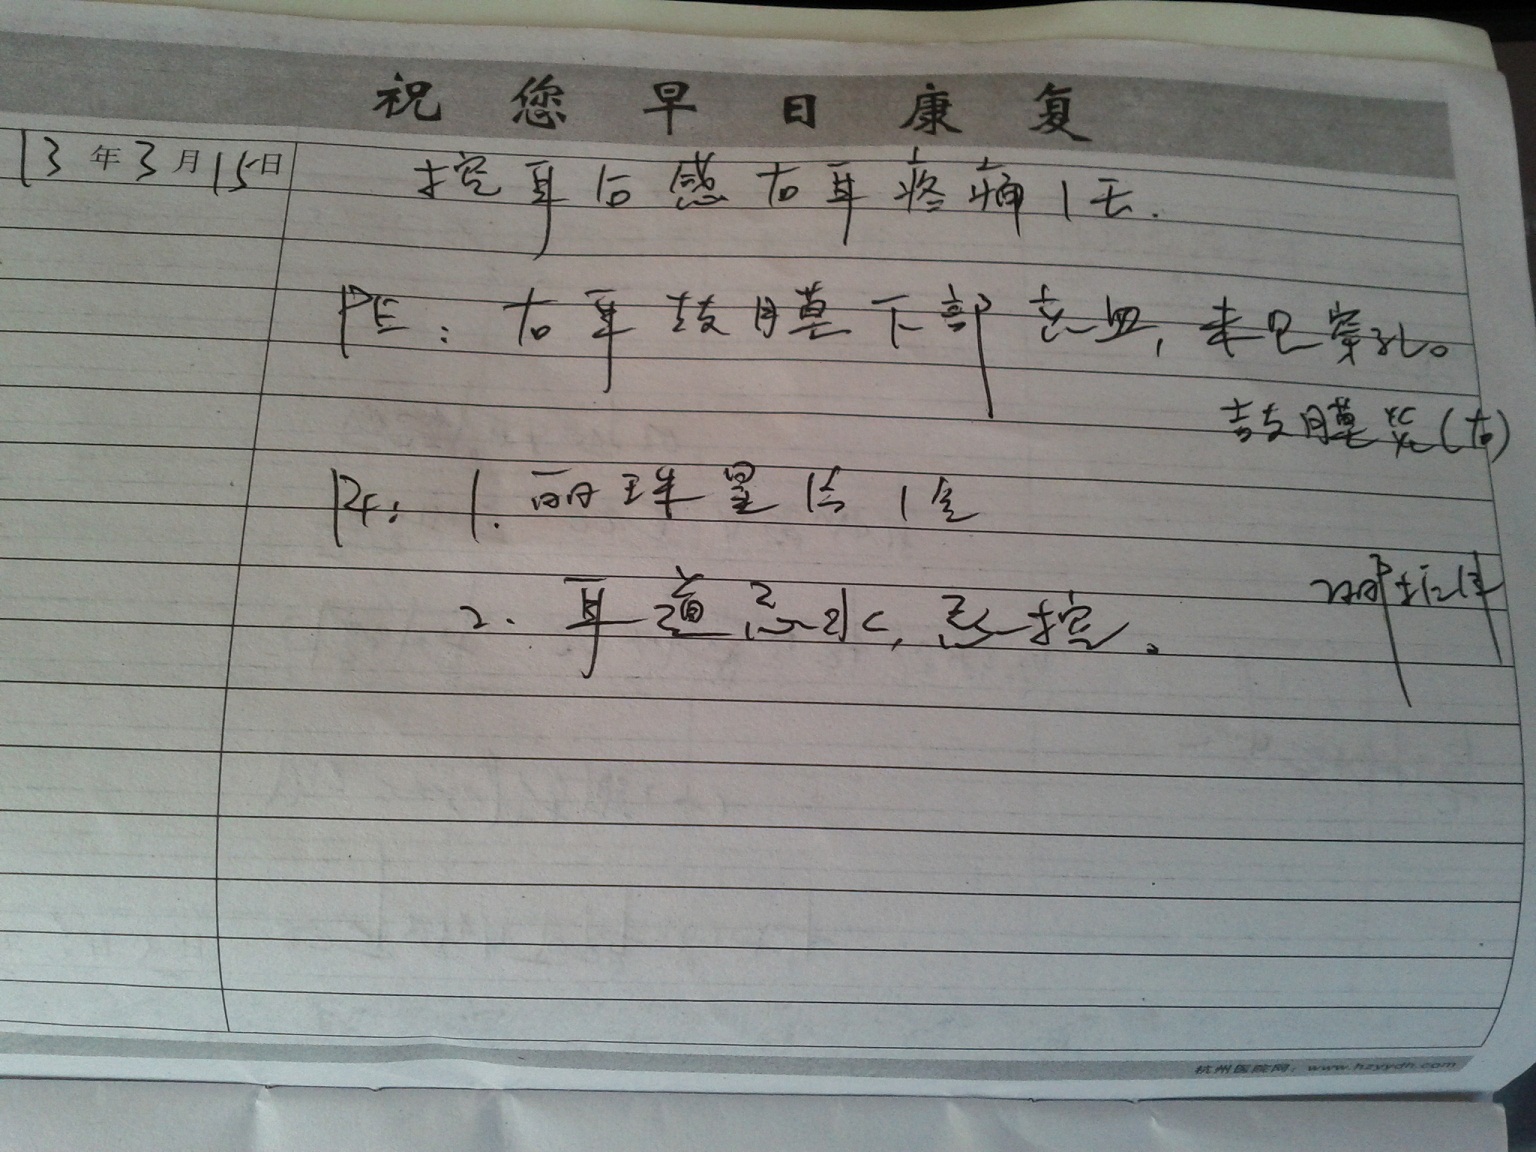 祝您早日康复
13年3月15日
挖耳后感右耳疼痛1天.
PE: 右耳鼓膜下部充血,未见穿孔。
鼓膜炎(右)
Rx: 1. 丽珠星 1合
2. 耳道忌水,忌挖。
杭州医院网:www.hzyydh.com